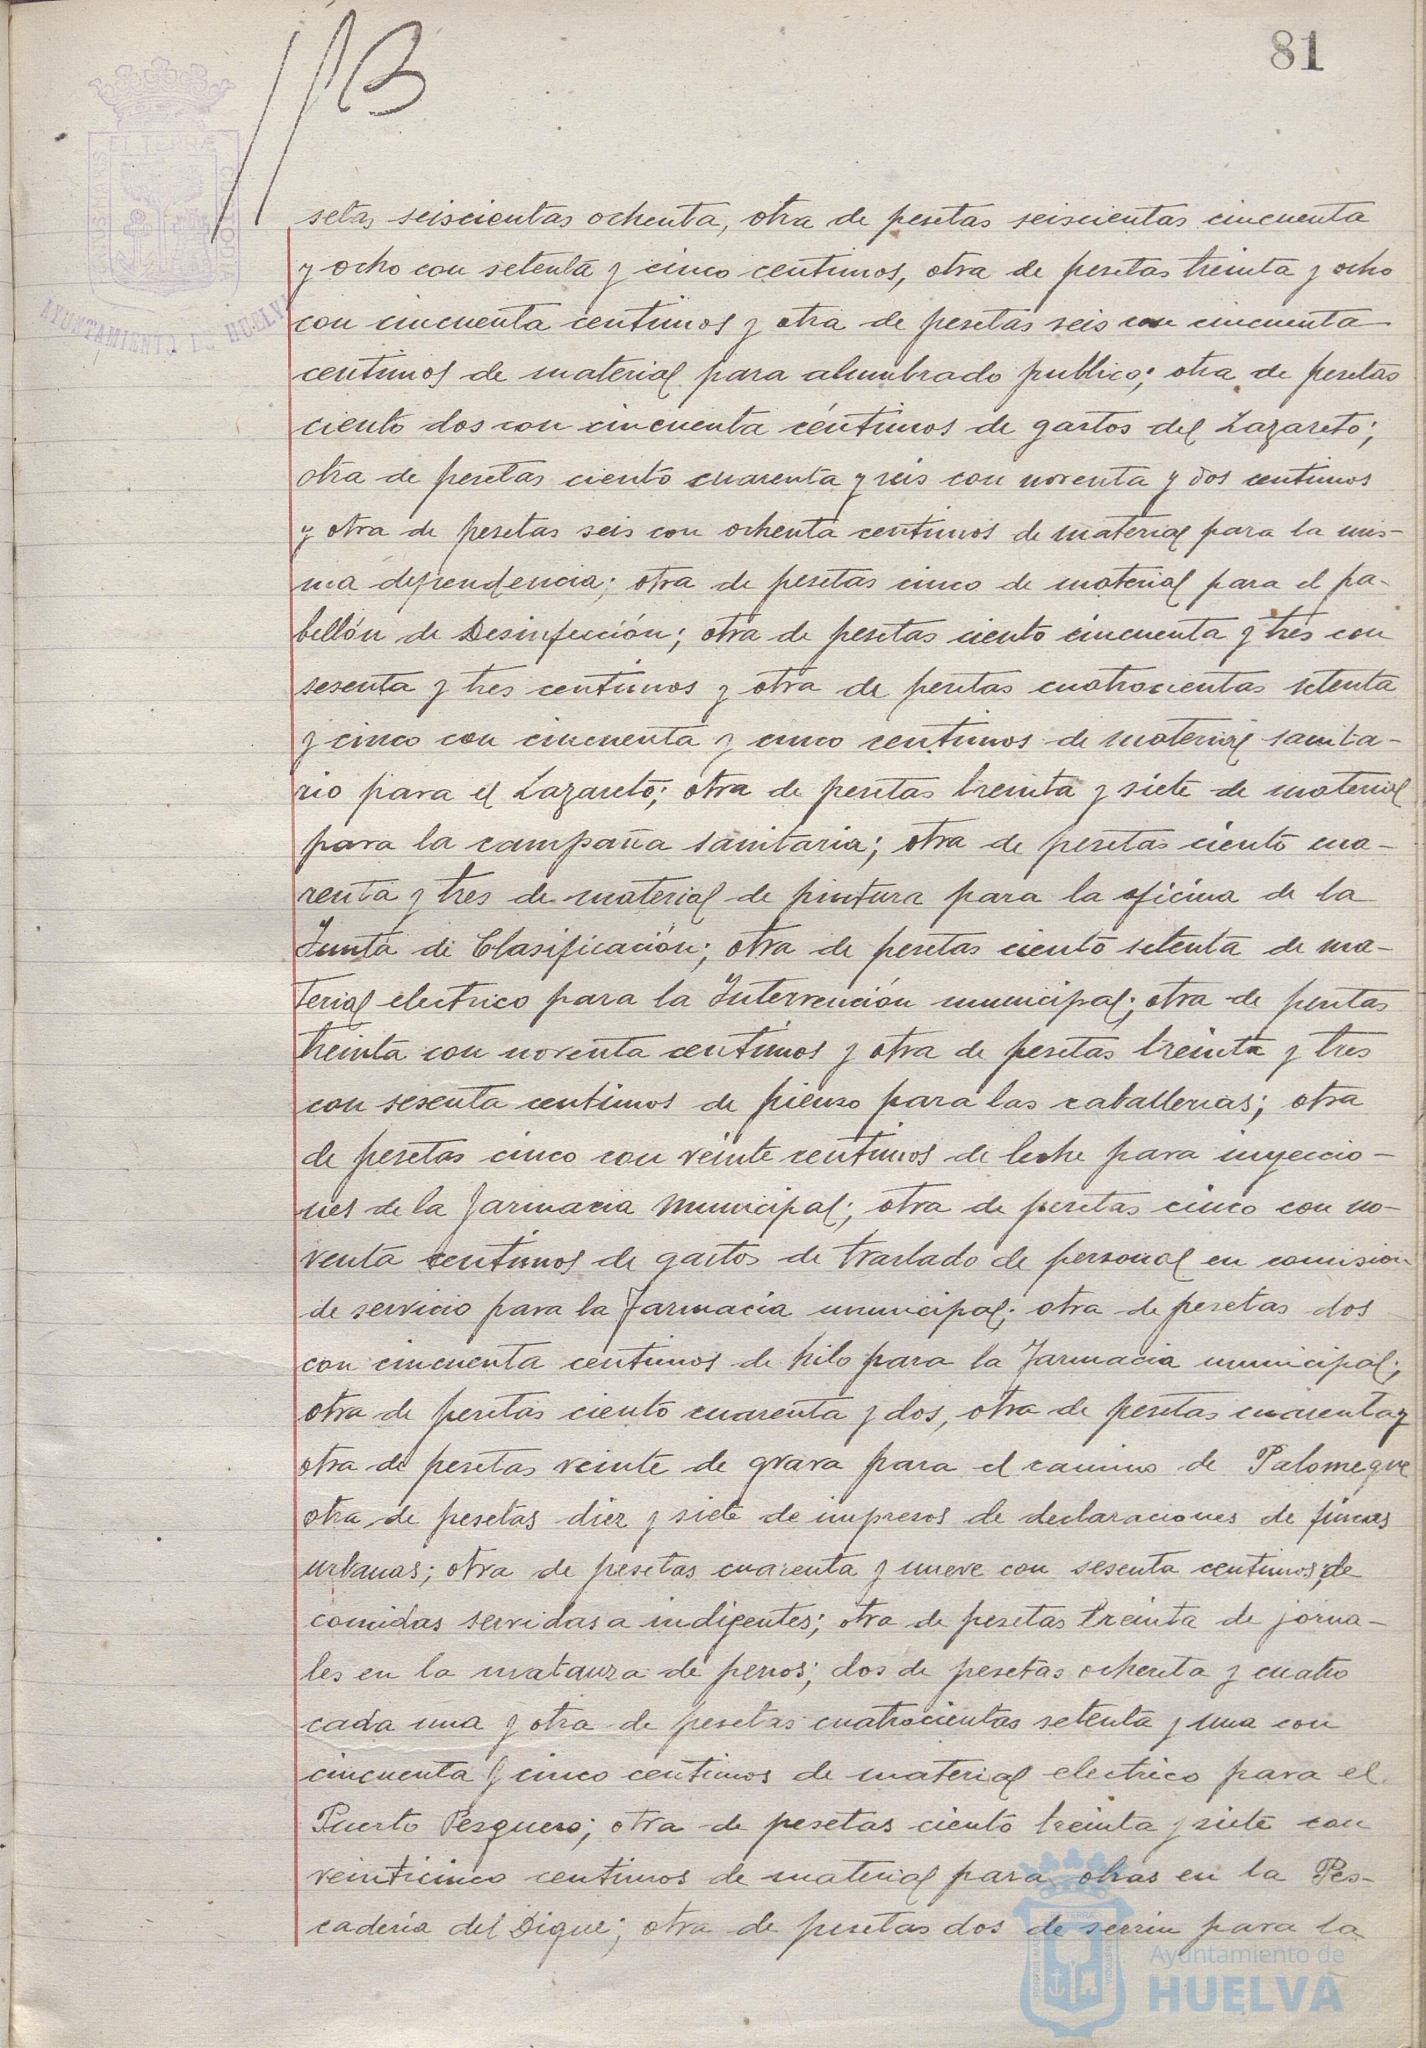 81
setas seiscientas ochenta, otra de pesetas seiscientas cincuenta
y ocho con setenta y cinco centimos, otra de pesetas treinta y ocho
con cincuenta centimos y otra de pesetas seis con cincuenta
centimos de material para alumbrado publico; otra de pesetas
ciento dos con cincuenta céntimos de gastos del Lazareto;
otra de pesetas ciento cuarenta y seis con noventa y dos centimos
y otra de pesetas seis con ochenta centimos de material para la mis-
ma dependencia; otra de pesetas cinco de material para el pa-
bellón de Desinfección; otra de pesetas ciento cincuenta y tres con
sesenta y tres centimos y otra de pesetas cuatrocientas setenta
y cinco con cincuenta y cinco centimos de material sanita-
rio para el Lazareto; otra de pesetas treinta y siete de material
para la campaña sanitaria; otra de pesetas ciento cua-
renta y tres de material de pintura para la oficina de la
Junta de Clasificación; otra de pesetas ciento setenta de ma-
terial electrico para la Intervención municipal; otra de pesetas
treinta con noventa centimos y otra de pesetas treinta y tres
con sesenta centimos de pienso para las caballerias; otra
de pesetas cinco con veinte centimos de leche para inyeccio-
nes de la farmacia Municipal; otra de pesetas cinco con no-
venta centimos de gastos de traslado de personal en comision
de servicio para la Farmacia municipal; otra de pesetas dos
con cincuenta centimos de hilo para la Farmacia municipal;
otra de pesetas ciento cuarenta y dos, otra de pesetas cuarenta y
otra de pesetas veinte de grava para el camino de Palomeque
otra de pesetas diez y siete de impresos de declaraciones de fincas
urbanas; otra de pesetas cuarenta y nueve con sesenta centimos, de
comidas servidas a indigentes; otra de pesetas treinta de jorna-
les en la matanza de perros; dos de pesetas ochenta y cuatro
cada una y otra de pesetas cuatrocientas setenta y una con
cincuenta y cinco centimos de material electrico para el
Puerto Pesquero; otra de pesetas ciento treinta y siete con
veinticinco centimos de material para obras en la Pes-
caderia del Dique; otra de pesetas dos de serrin para la
AYUNTAMIENTO DE HUELVA
Ayuntamiento de
HUELVA